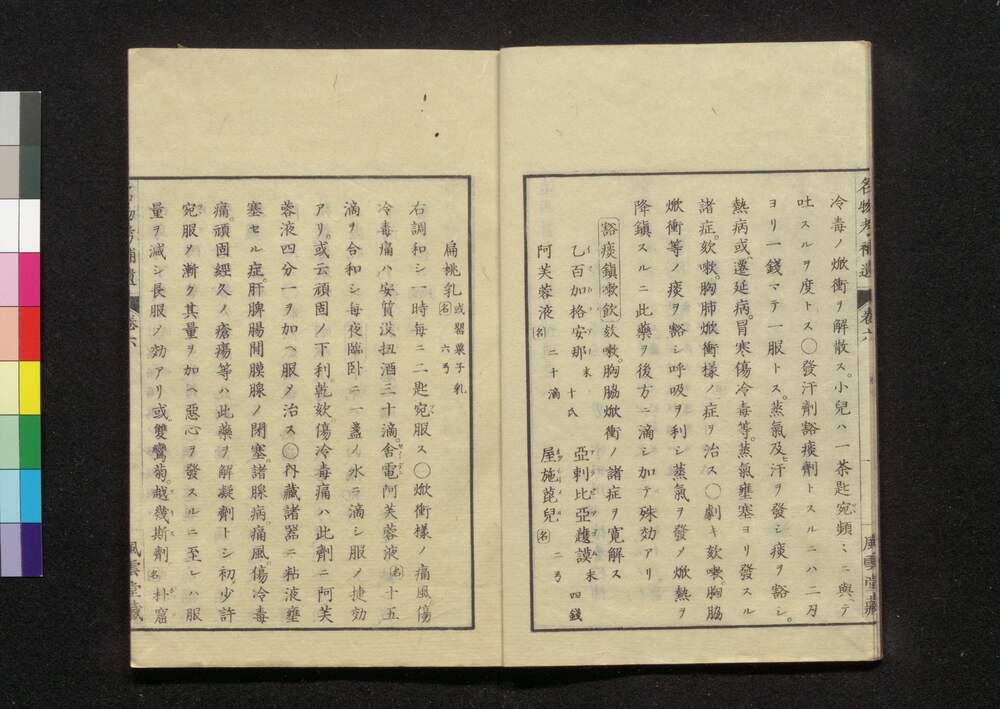 名物考補遺 卷六 一 風雲堂藏
冷毒ノ焮衝ヲ解散ス。小兒ハ一茶匙宛頻ミニ與テ
吐スルヲ度トス〇發汗劑豁痰劑トスルニハ二刃
ヨリ一錢マテ一服トス。蒸氣及ヒ汗ヲ發シ痰ヲ豁シ。
熱病或ハ遷延病。冒寒傷冷毒等。蒸氣壅塞ヨリ發スル
諸症。欬嗽。胸肺焮衝樣ノ症ヲ治ス〇劇キ欬嗽。胸脇
焮衝等ノ痰ヲ豁シ呼吸ヲ利シ蒸氣ヲ發メ焮熱ヲ
降鎮スルニ此藥ヲ後方ニ滴シ加テ殊効アリ
豁痰鎮嗽飲 欬嗽。胸脇焮衝ノ諸症ヲ寛解ス
乙百加格安那 末 十氏 亞剌比亞護謨 末 四錢
阿芙蓉液 名 二十滴 屋施蓖兒 名 二ヲ
扁桃乳 名 或罌粟子乳 六ヲ
右調和シ一時每ニ二匙宛服ス〇焮衝樣ノ痛風傷
冷毒痛ハ安質沒扭酒三十滴。舍電阿芙蓉液 名 十五
滴ヲ合和シ每夜臨卧ニ一盞ノ水ニ滴シ服メ捷効
アリ。或云頑固ノ下利。乾欬傷冷毒痛ハ此劑ニ阿芙
蓉液四分一ヲ加ヘ服メ治ス〇內藏諸器ニ粘液壅
塞セル症。肝脾腸間膜腺ノ閉塞。諸腺病。痛風。傷冷毒
痛。頑固經久ノ瘡瘍等ハ此藥ヲ解凝劑トシ初少許
宛服メ漸ク其量ヲ加ヘ惡心ヲ發スルニ至レハ服
量ヲ減シ長服メ効アリ或雙鸞菊。越幾斯劑 名 朴屈
名物考補遺 卷六 風雲堂藏